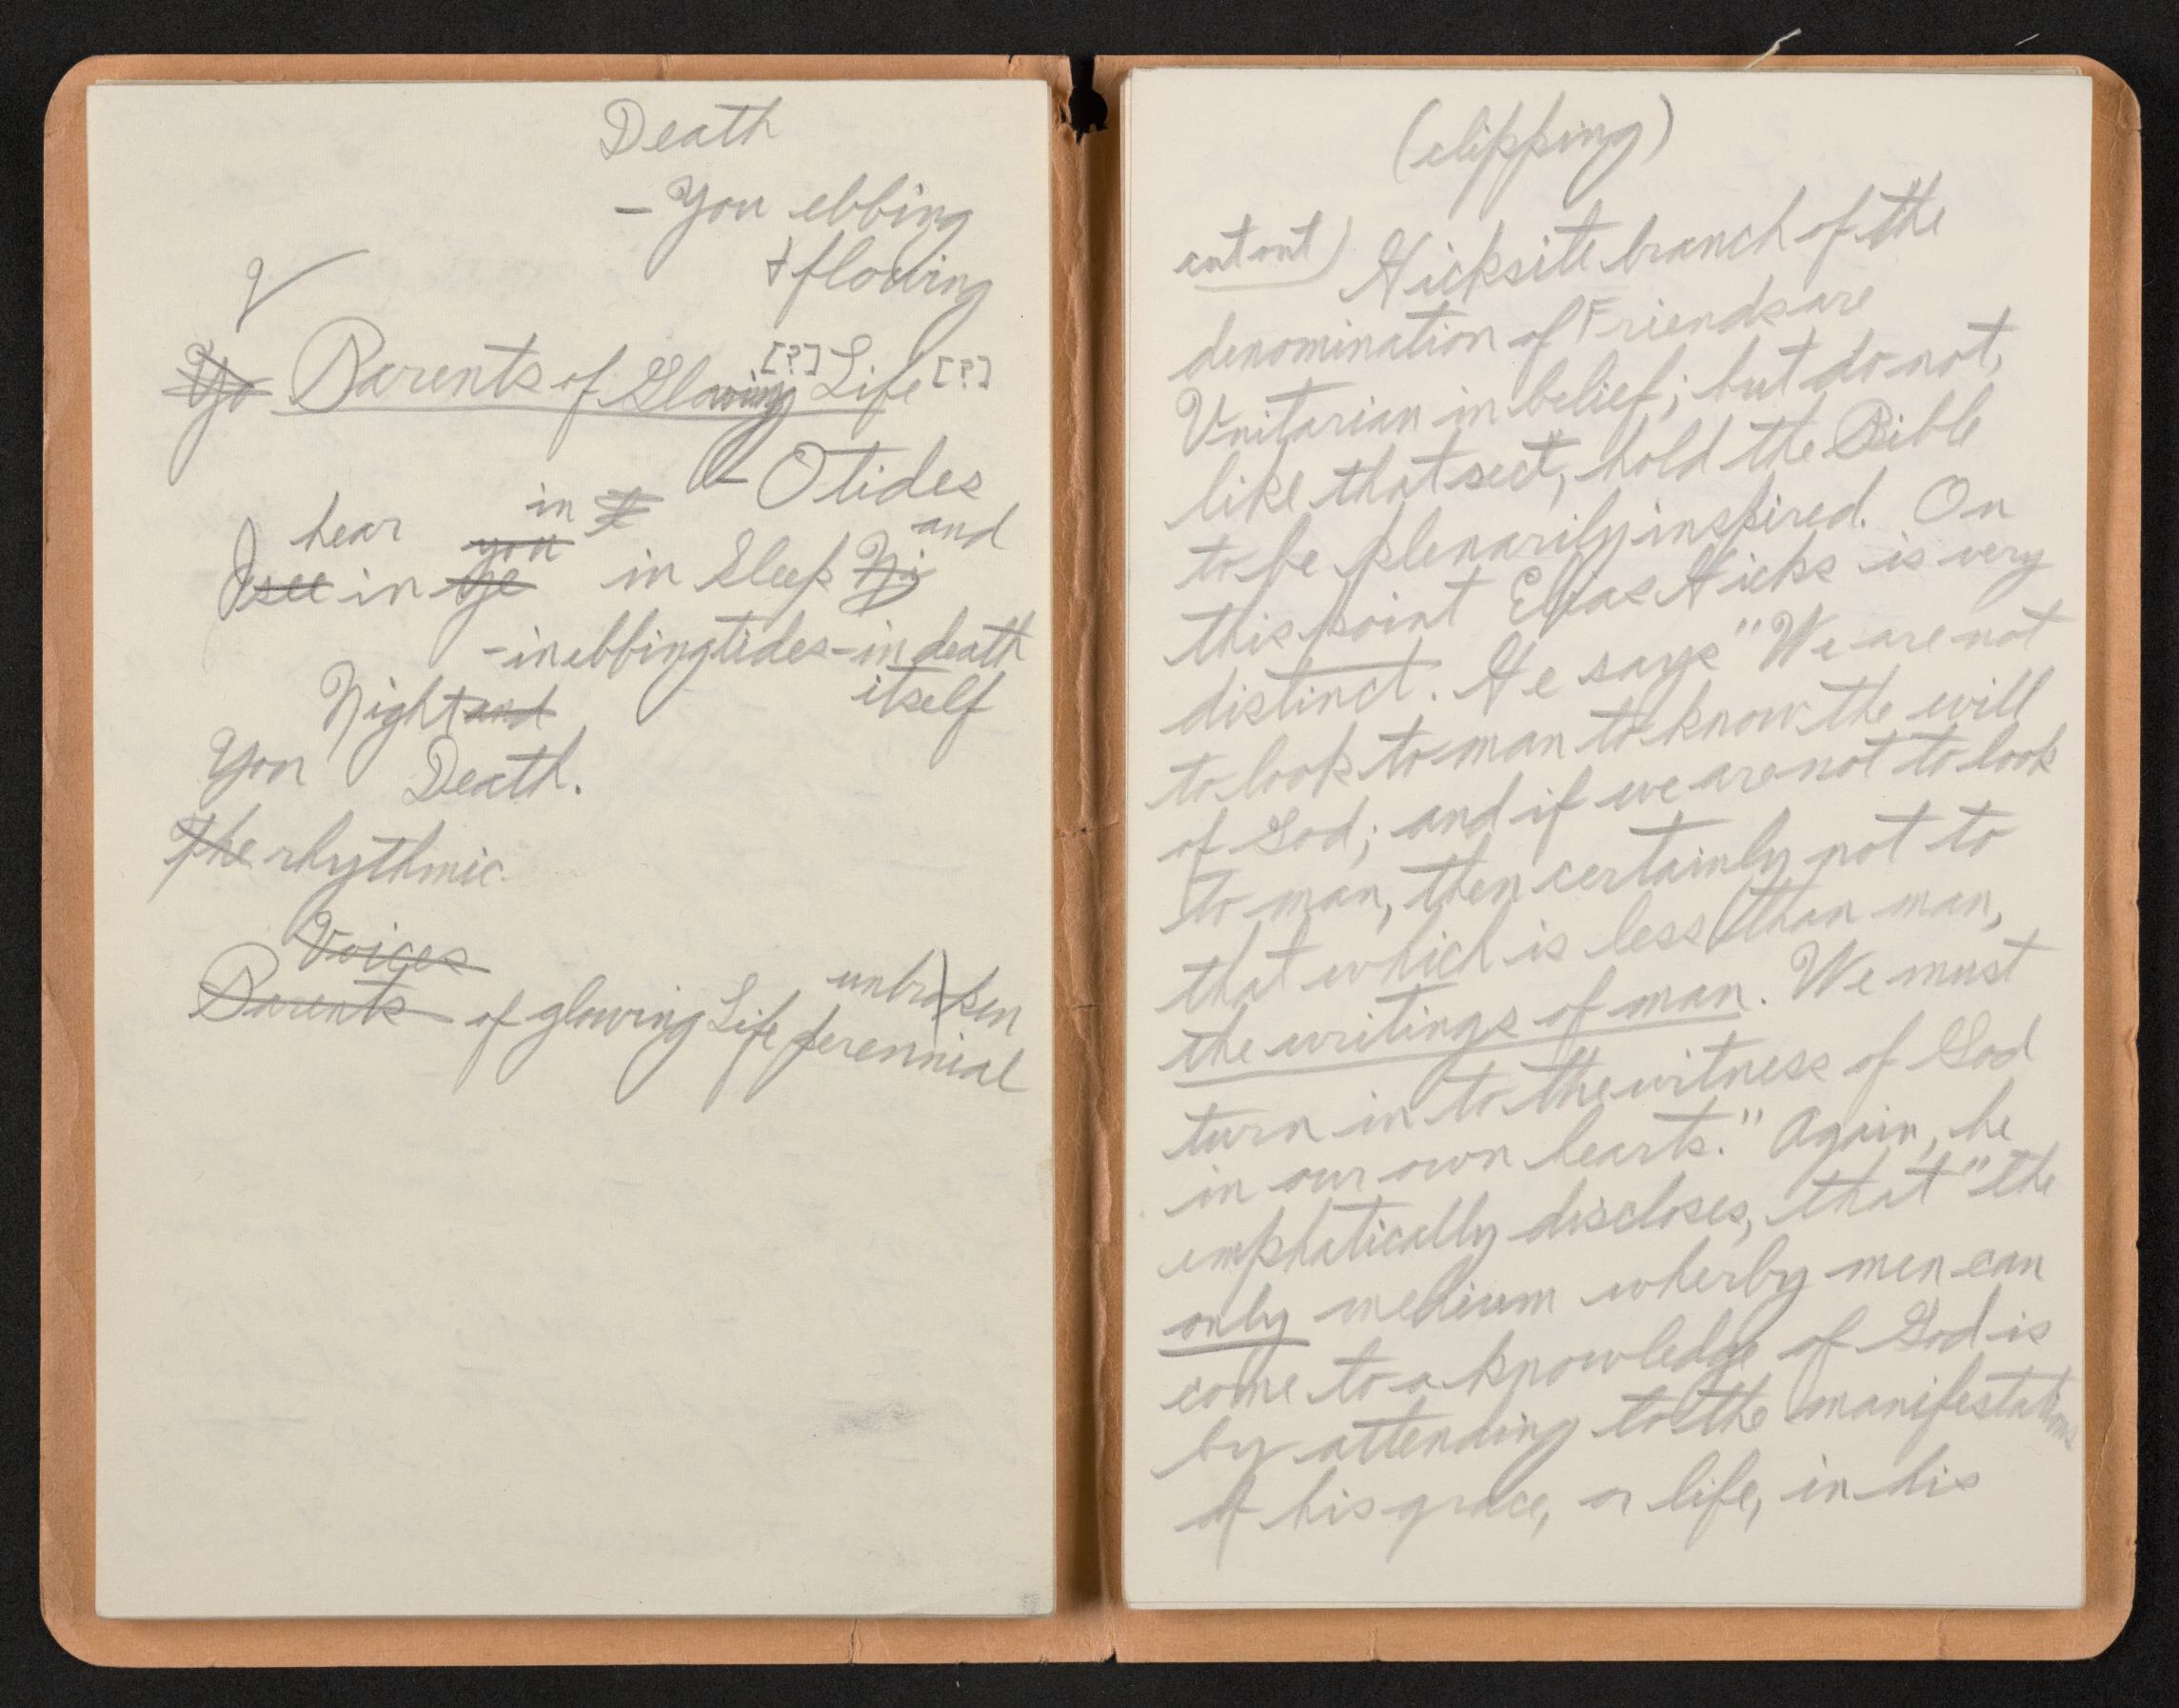 Death
- You ebbing
& flowing
Yo Parents of Glowing [?] Life [?]
- O tides
hear you in t and
I see in ye in Sleep Ni
- in ebbing tides - in death
itself
Night and
You Death.
The rhythmic
Voices
Parents of glowing Life unbroken
perennial
(clipping)
cut out) Hicksite branch of the
denomination of Friends are
Unitarian in belief; but do not,
like that sect, hold the Bible
to be plenarily inspired. On
this point Elias Hicks is very
distinct. He says "We are not
to look to man to know the will
of God; and if we are not to look
to man, then certainly not to
that which is less than man,
the writings of man. We must
turn in to the witness of God
in our own hearts." Again, he
emphatically discloses, that "the
only medium wherby men can
come to a knowledge of God is
by attending to the manifestations
of his grace, or life, in his